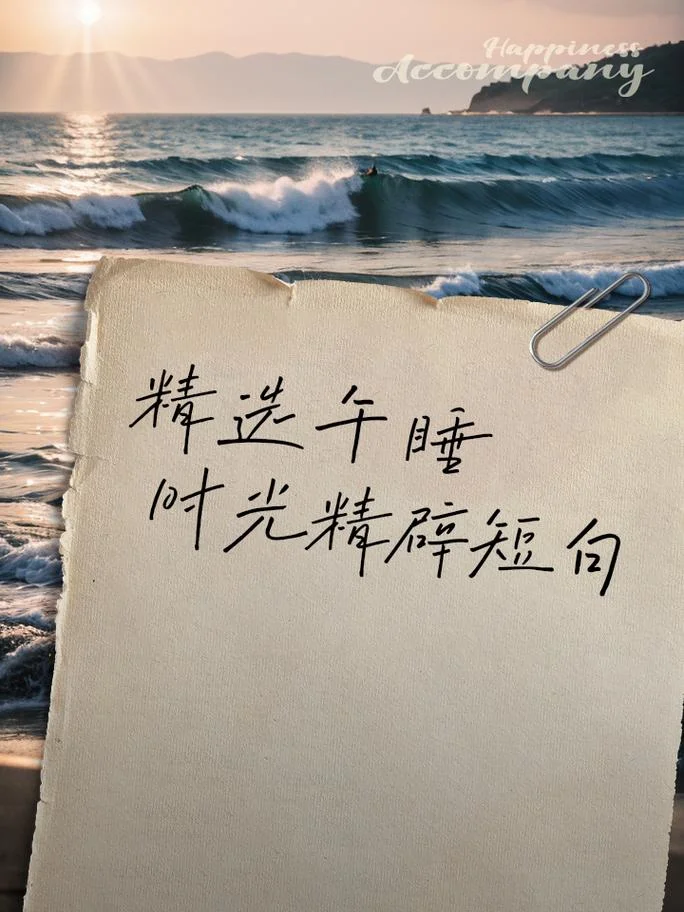 Happiness
Accompany
精选午睡
时光精辟短句